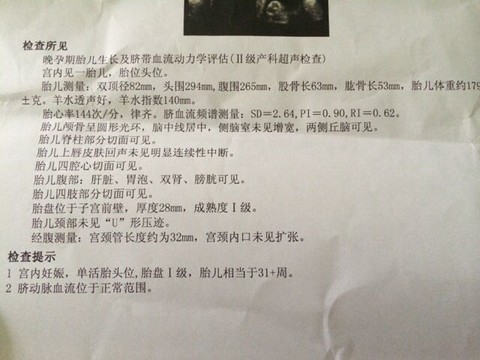 检查所见
晚孕期胎儿生长及脐带血流动力学评估(II级产科超声检查)
宫内见一胎儿，胎位头位。
胎儿测量：双顶径82mm，头围294mm,腹围265mm，股骨长63mm，肱骨长53mm，胎儿体重约179
士克。羊水透声好，羊水指数140mm。
胎心率144次/分，律齐。脐血流频谱测量：SD=2.64,PI=0.90,RI=0.62。
胎儿颅骨呈圆形光环，脑中线居中，侧脑室未见增宽，两侧丘脑可见。
胎儿脊柱部分切面可见。
胎儿上唇皮肤回声未见明显连续性中断。
胎儿四腔心切面可见。
胎儿腹部：肝脏、胃泡、双肾、膀胱可见。
胎儿四肢部分切面可见。
胎盘位于子宫前壁，厚度28mm，成熟度Ⅰ级。
胎儿颈部未见“U”形压迹。
经腹测量：宫颈管长度约为32mm，宫颈内口未见扩张。
检查提示
1 宫内妊娠，单活胎头位,胎盘Ⅰ级，胎儿相当于31+周。
2 脐动脉血流位于正常范围。